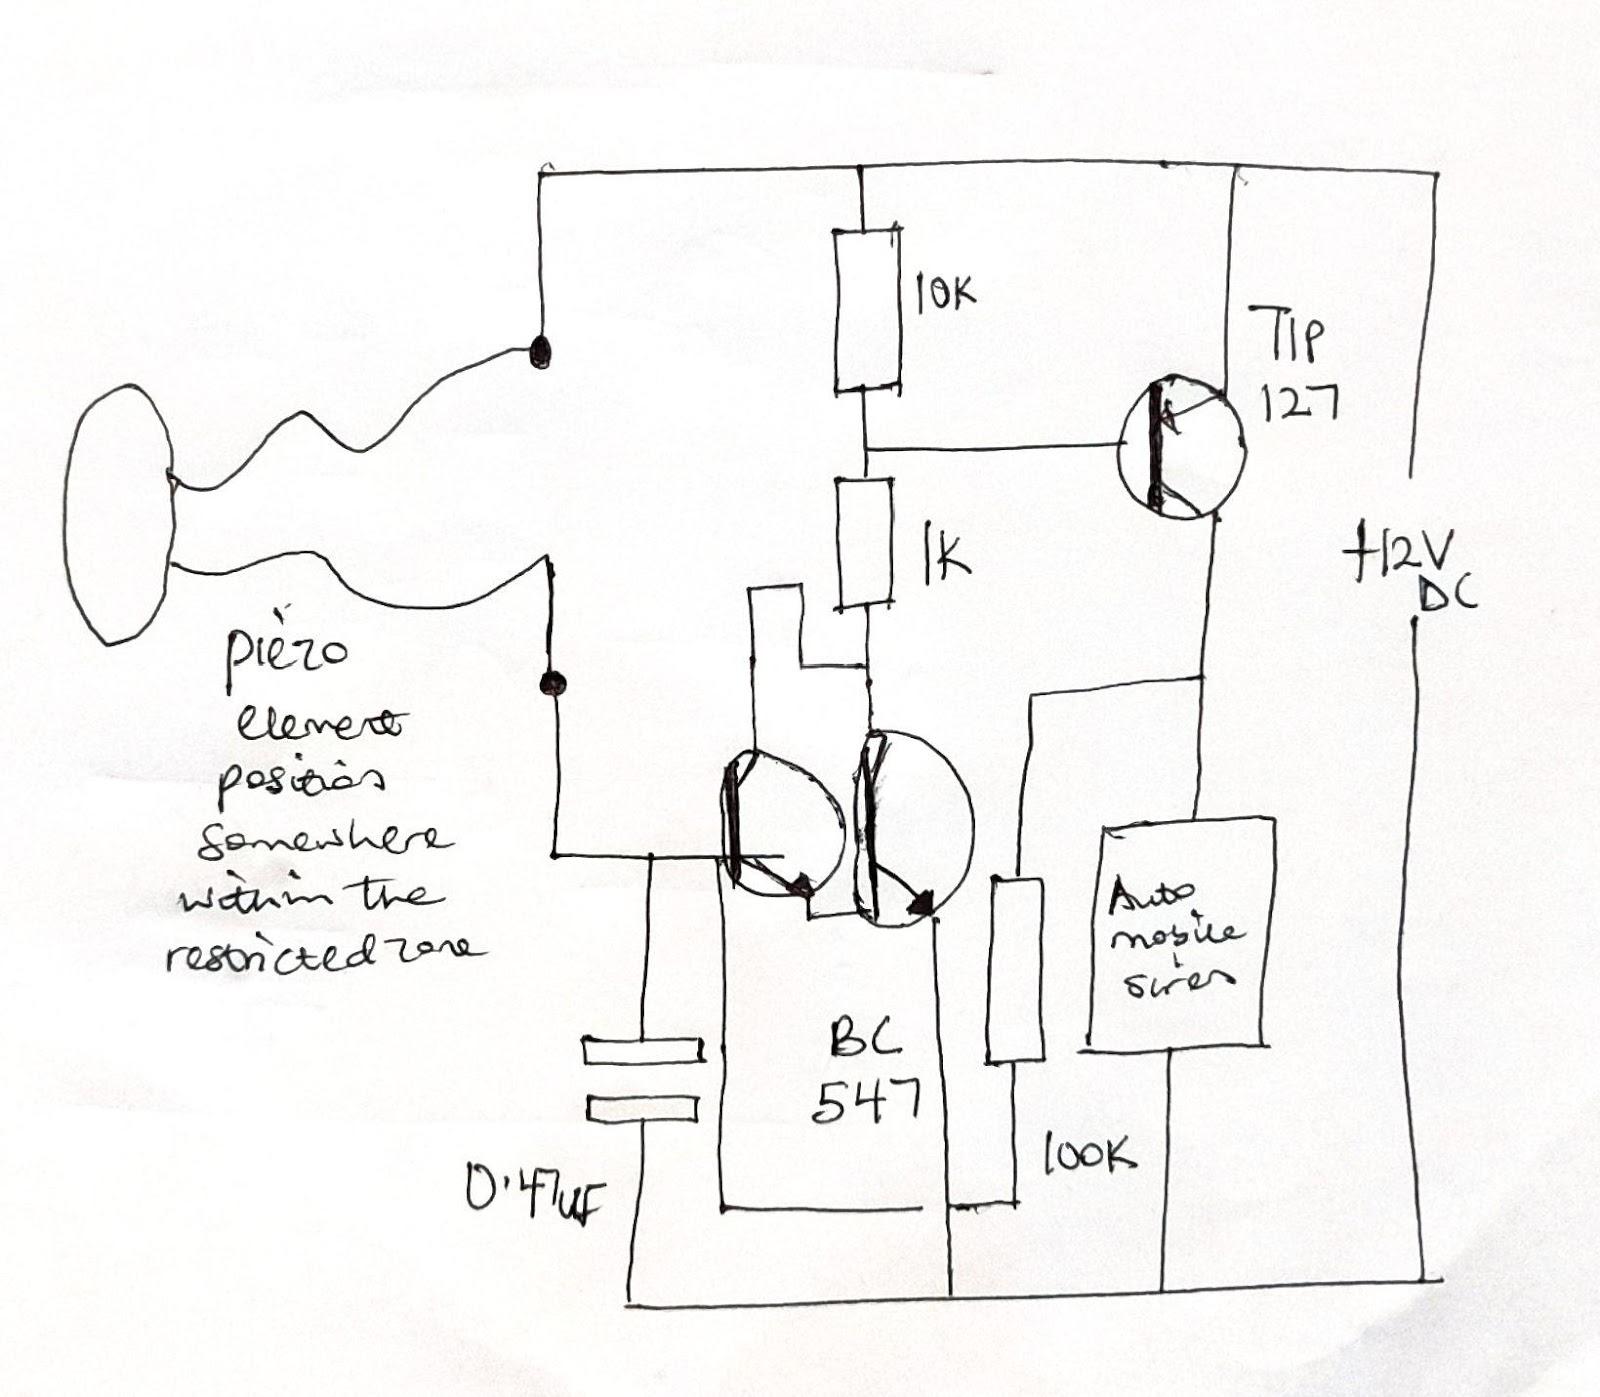 10K
TIP
127
1K
+12V
DC
piezo
element
position
somewhere
within the
restricted zone
Auto
mobile
siren
BC
547
100K
0.47uF